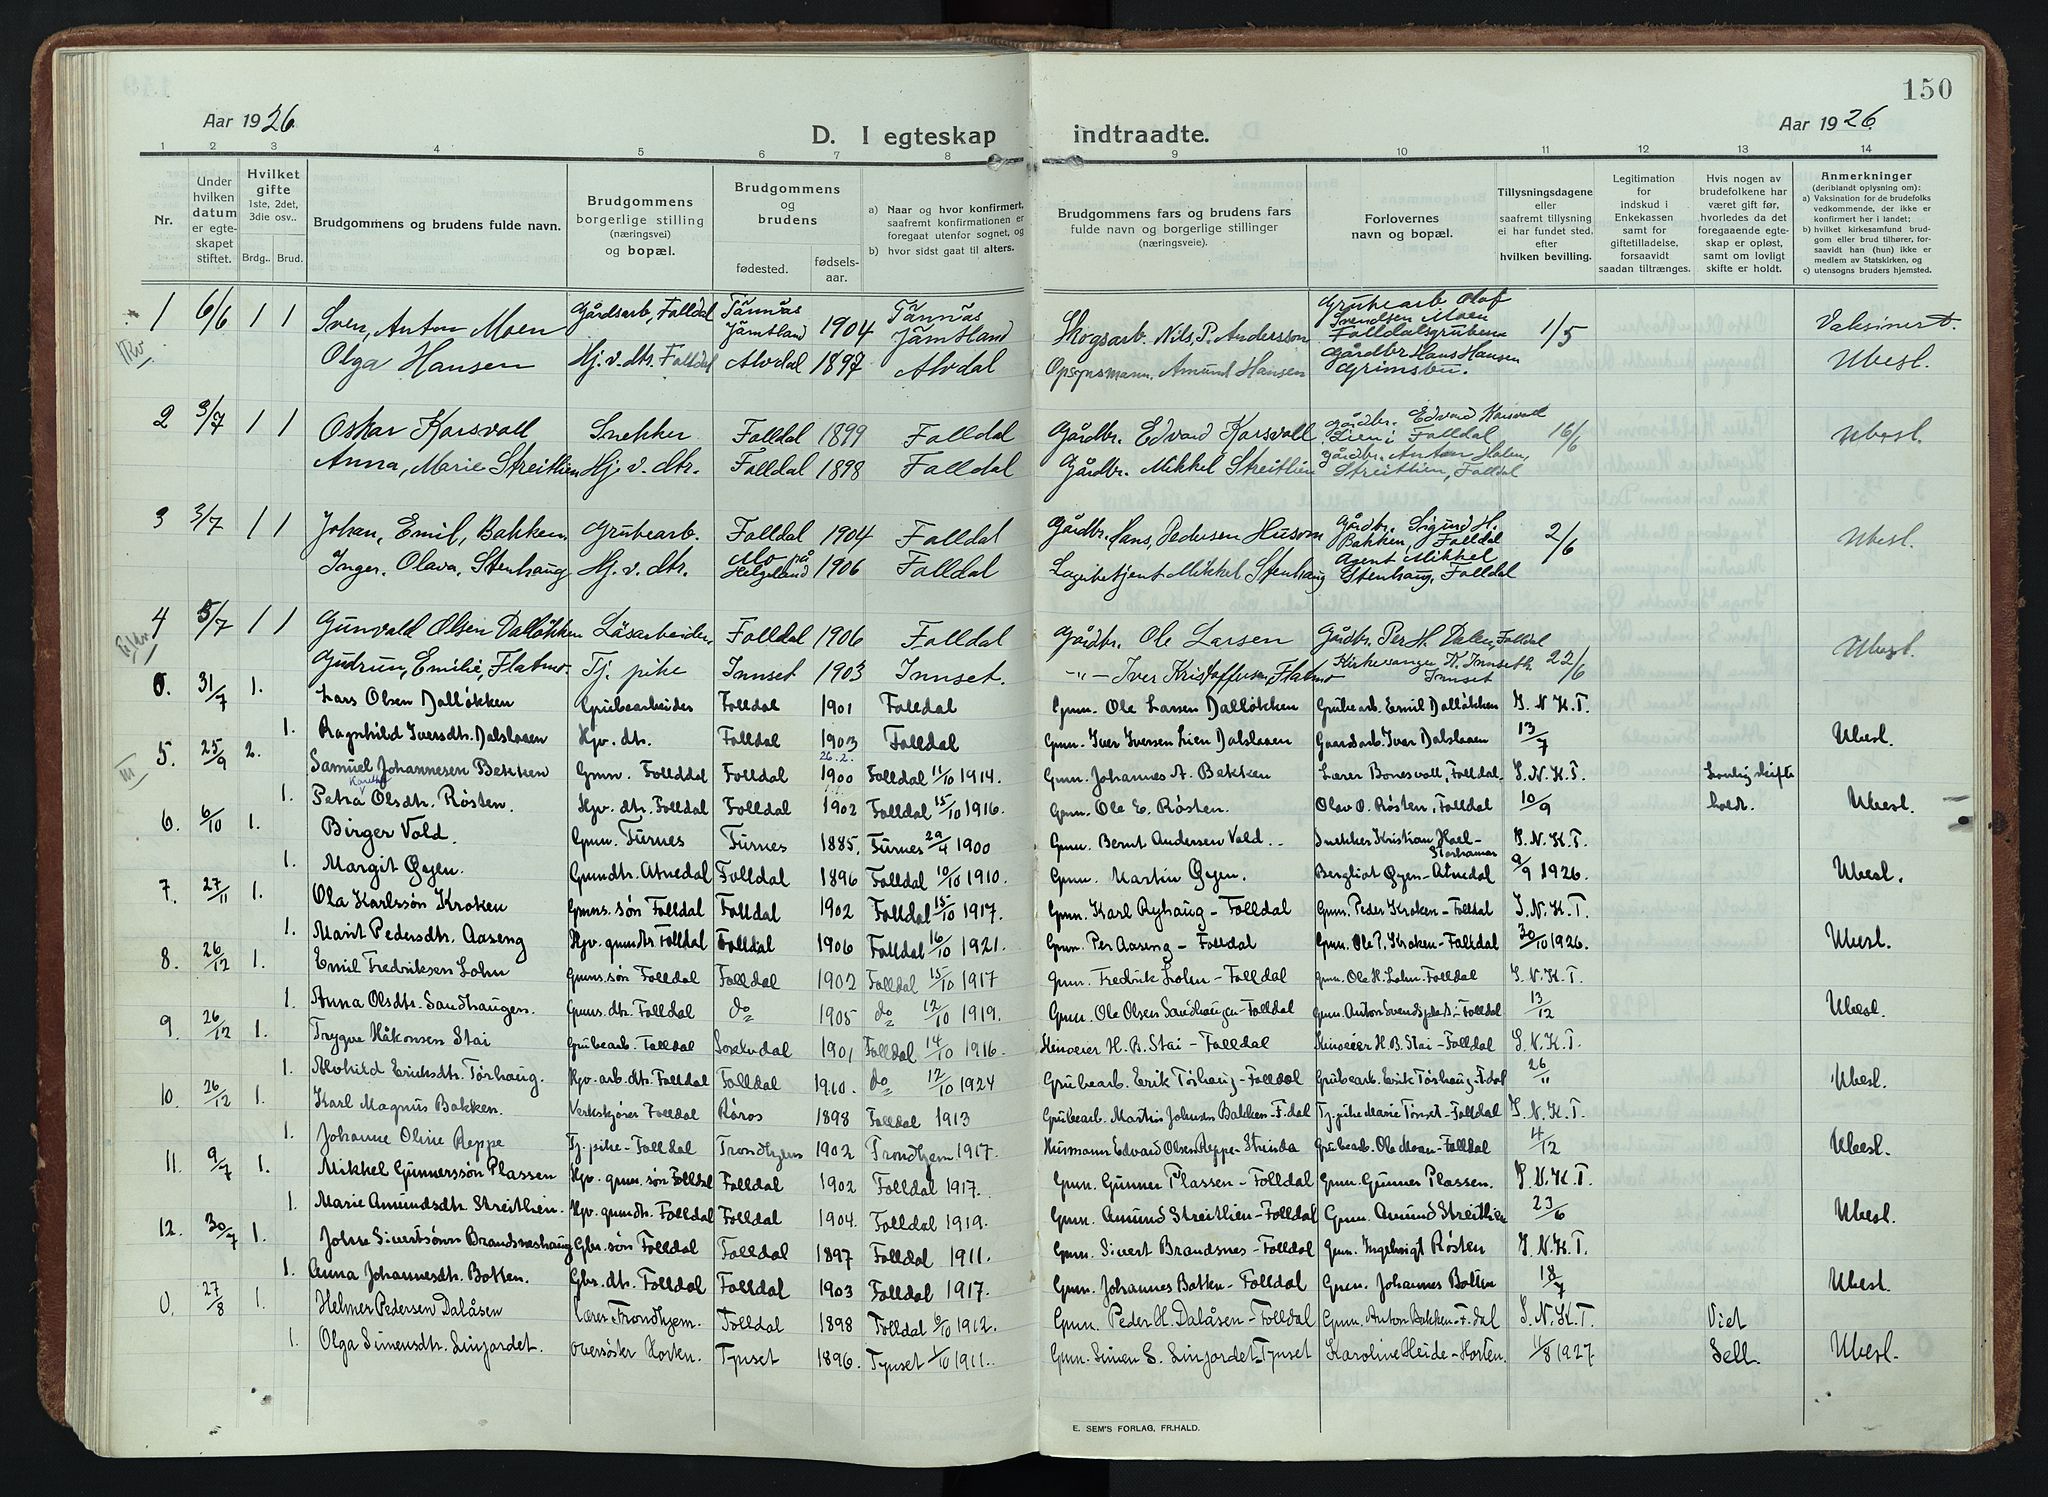 150
Aar 1926
D. I egteskap indtraadte.
Aar 1926
1 2 3 4 5 6 7 8 9 10 11 12 13 14
Nr.
Under hvilken datum er egteskapet stiftet.
Hvilket gifte 1ste, 2det, 3die osv..
Brdg.. Brud.
Brudgommens og brudens fulde navn.
Brudgommens borgerlige stilling (næringsvei) og bopæl.
Brudgommens og brudens
fødested. fødselsaar.
a) Naar og hvor konfirmert, saafremt konfirmationen er foregaat utenfor sognet, og
b) hvor sidst gaat til alters.
Brudgommens fars og brudens fars fulde navn og borgerlige stillinger (næringsveie).
Forlovernes navn og bopæl.
Tillysningsdagene eller saafremt tillysning ei har fundet sted, efter hvilken bevilling.
Legitimation for indskud i Enkekassen samt for giftetilladelse, forsaavidt saadan tiltrænges.
Hvis nogen av brudefolkene har været gift før, hvorledes da det foregaaende egteskap er opløst, samt om lovligt skifte er holdt.
Anmerkninger (deriblandt oplysning om):
a) Vaksination for de brudefolks vedkommende, der ikke er konfirmert her i landet;
b) hvilket kirkesamfund brudgom eller brud tilhører, forsaavidt han (hun) ikke er medlem av Statskirken, og
c) utensogns bruders hjemsted.
1 6/6 1 1 Sven, Anton Moen Gårdsarb, Folldal Tännäs Jämtland 1904 Tännäs Jämtland Skogsarb. Nils, P. Andersson Grubearb Olof Svendsen Moen Folldalsgruben 1/5 Vaksinert.
Olga Hansen Hj. v. dtr. Folldal Alvdal 1897 Alvdal Opsynsmann. Amund Hansen Gårdbr Hans Hansen Grimsbu. Ubesl.
2 3/7 1 1 Oskar Korsvoll Snekker Folldal 1899 Folldal Gårdbr. Edvard Korsvoll Gårdbr. Edvard Korsvoll Lien i Folldal 16/6 Ubesl.
Anna, Marie Streitlien Hj. v. dtr. Folldal 1898 Folldal Gårdbr. Mikkel Streitlien Gårdbr. Anton Holen, Streitlien, Folldal
3 3/7 1 1 Johan, Emil, Bakken. Grubearb. Folldal 1904 Folldal Gårdbr. Hans, Pedersen Husom Gårdbr. Sigurd H. Bakken, Folldal 2/6 Ubesl.
Inger. Olava. Stenhaug Hj. v. dtr. Mo på Helgeland 1906 Folldal Lagerbetjent Mikkel Stenhaug Agent Mikkel Stenhaug, Folldal
4 5/7 1 1 Gunvald Olsen Dalløkken Låsarbeider. Folldal 1906 Folldal Gårdbr. Ole Larsen Gårdbr. Per H. Dalen, Folldal Ubesl.
Gudrun, Emilie, Flatmo. Tj. pike Innset 1903 Innset. -"- Iver Kristoffersen, Flatmo Kirkesanger K. Innseth Innset 22/6
0. 31/7 1. Lars Olsen Dalløkken Grubearbeider Folldal 1901 Folldal Gmn. Ole Larsen Dalløkken Grubearb. Emil Dalløkken S. N. K. T.
1. Ragnhild Iversdtr. Dalslaaen Hjv. dtr. Folldal 1903 Folldal Gmn. Iver Iversen Lien Dalslaaen Gaardarb. Ivar Dalslaaen 13/7 Ubesl.
III 5. 25/9 2. Samuel Johannesen Bekken Gmn. Folldal Folldal 26.2. 1900 Folldal 11/10 1914. Gmn. Johannes A. Bekken Lærer Bonesvoll, Folldal. S. N. K. T. Lovlig skifte
1. Petra Olsdtr. Røsten. Hjv. dtr. Folldal Folldal 1902 Folldal 15/10 1916. Gmn. Ole E. Røsten. Olav O. Røsten, Folldal 10/9 holdt. Ubesl.
6. 6/10 1. Birger Vold. Gmn. Furnes Furnes 1885. Furnes 29/4 1900 Gmn. Bernt Andersen Vold.. Snekker Kristian Hoel - Storhamar S. N. K. T.
1. Margit Øyen. Gmndtr. Atnedal Folldal 1896 Folldal 10/10 1910. Gmn. Martin Øyen. Bergliot Øyen - Atnedal 9/9 1926. Ubesl.
7. 27/11 1. Ola Karlssøn Kroken Gmns. søn Folldal Folldal 1902 Folldal 15/10 1917. Gmn. Karl Ryhaug - Folldal Gmn. Peder Kroken - Folldal S. N. K. T.
1. Marit Pedersdtr. Aaseng Hjv. gmndtr Folldal Folldal 1906 Folldal 16/10 1921. Gmn. Per Aaseng - Folldal Gmn. Ole P. Kroken - Folldal 30/10 1926. Ubesl.
8. 26/12 1. Emil Fredriksen Lohn Gmns. søn Folldal Folldal 1902 Folldal 15/10 1917 Gmn. Fredrik Lohn - Folldal Gmn. Ole H. Lohn. Folldal S. N. K. T.
1. Anna Olsdtr. Sandhaugen. Gmns. dtr. Folldal do 1905 do 12/10 1919. Gmn. Ole Olsen Sandhaugen - Folldal Gmn. Anton - Folldal 13/12 Ubesl.
9. 26/12 1. Trygve Håkonsen Stai Grubearb. Folldal Sollidal 1901 Folldal 14/10 1916. Kinoeier H. B. Stai - Folldal Kinoeier H. B. Stai - Folldal S. N. K. T.
1. Alvhild Eriksdtr. Tørhaug. Hjv. arb. dtr. Folldal Folldal 1910. do 12/10 1924 Grubearb. Erik Tørhaug - Folldal Grubearb. Erik Tørhaug - F.dal 26/11 Ubesl.
10. 26/12 1. Karl Magnus Bakken. Verkskjører Folldal Røros 1898 Folldal 1913 Grubearb. Martin Johnsen Bakken - F.dal Tj. pike Marie Tønset - Folldal S. N. K. T.
1. Johanne Oline Reppe Tj. pike - Folldal Trondhjem 1902 Trondhjem 1917. Husmann Edvard Olsen Reppe - Strinda Grubearb. Ole Moan - Folldal 4/12 Ubesl.
11. 9/7 1. Mikkel Gunnerssøn Plassen Hjv. gmn. søn Folldal Folldal 1902 Folldal 1917. Gmn. Gunner Plassen - Folldal Gmn. Gunner Plassen. S. N. K. T.
1. Marie Amundsdtr. Streitlien. Hjv. gmndtr. Folldal Folldal 1904. Folldal 1919. Gmn. Amund Streitlien - Folldal Gmn. Amund Streitlien 23/6 Ubesl.
12. 30/7 1. John Sivertsønn Brandsneshaug Gbr. søn Folldal Folldal 1897 Folldal 1911. Gmn. Sivert Brandsnes - Folldal Gmn. Ingebrigt Røsten S. N. K. T.
1. Anna Johannesdtr. Botten. Gbr. dtr. Folldal Folldal 1903 Folldal 1917. Gmn. Johannes Botten - Folldal Gmn. Johannes Botten 18/7 Ubesl.
0. 27/8 1. Helmer Pedersen Dalåsen Lærer Trondhjem. Folldal 1898 Folldal 6/10 1912. Gmn. Peder H. Dalåsen - Folldal Gmn. Anton Bakken - F.dal S. N. K. T. Viet
1. Olga Simensdtr. Linjordet. Oversøster Horten. Tynset 1896. Tynset 1/10 1911. Gmn. Simen S. Linjordet - Tynset Karoline Heide - Horten. 11/8 1927. Sell. Ubesl.
E. SEM'S FORLAG, FR.HALD.